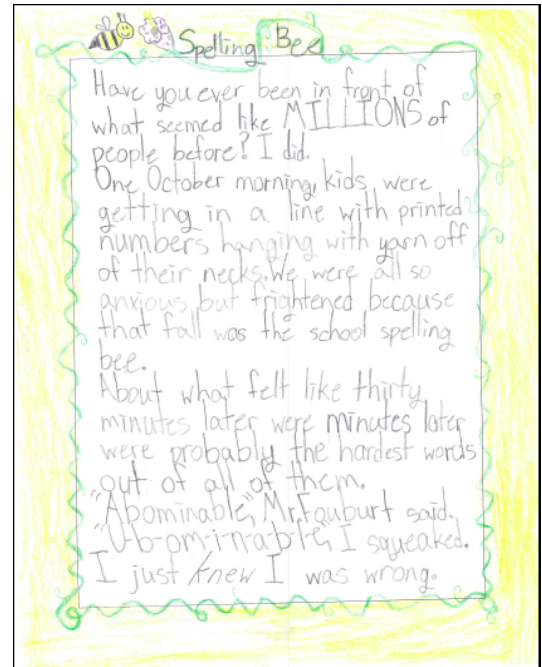 Spelling Bee
Have you ever been in front of
what seemed like MILLIONS of
people before? I did.
One October morning, kids were
getting in a line with printed
numbers hanging with yarn off
of their necks. We were all so
anxious but frightened because
that fall was the school spelling
bee.
About what felt like thirty
minutes later were minutes later
were probably the hardest words
out of all of them.
"Abominable," Mr. Fouburt said.
"U-b-om-i-n-a-b-l-e," I squeaked.
I just knew I was wrong.